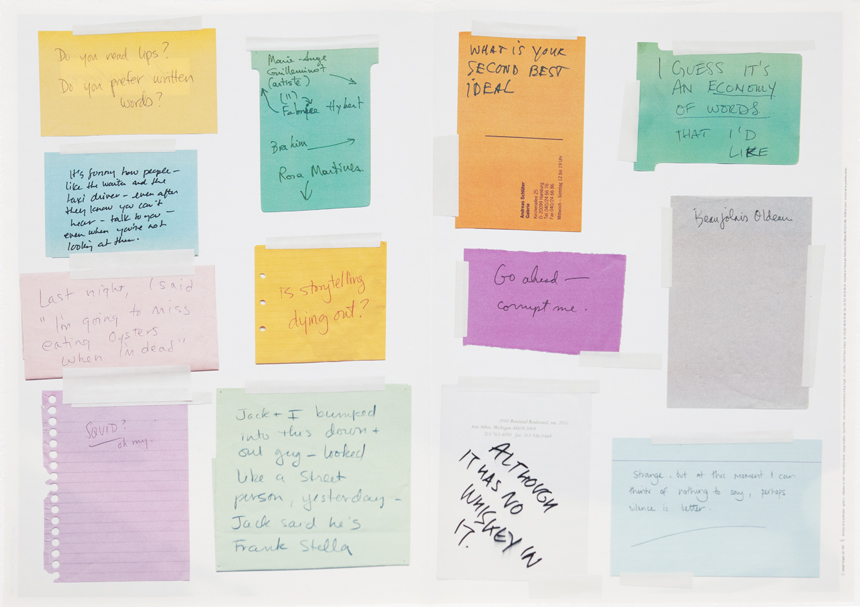 Do you read lips?
Do you prefer written
words?
It's funny how people –
like the waiter and the
taxi driver – even after
they know you can't
hear – talk to you –
even when you're not
looking at them.
Last night, I said
"I'm going to miss
eating Oysters
when I'm dead"
SQUID?
oh my.
Marie-Ange
Guilleminot
(artiste)
(11)
Fabrice Hybert
Brahim
Rosa Martinez
is storytelling
dying out?
Jack + I bumped
into this down +
out guy – looked
like a street
person, yesterday –
Jack said he's
Frank Stella
WHAT IS YOUR
SECOND BEST
IDEAL
Andreas Schlüter
Galerie
Go ahead –
corrupt me.
ALTHOUGH
IT HAS NO
WHISKEY IN
IT.
I GUESS IT'S
AN ECONOMY
OF WORDS
THAT I'D
LIKE
Beaujolais Oldeau
Strange, but at this moment I can
think of nothing to say, perhaps
silence is better.